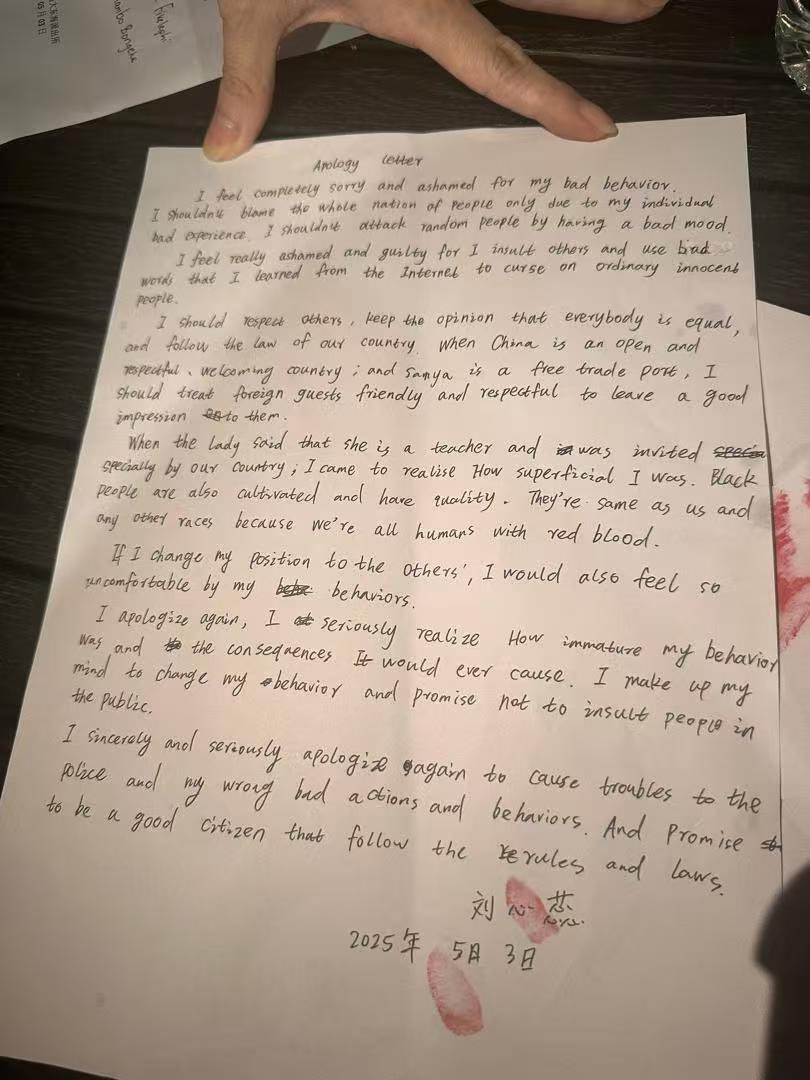 大东海派出所
05月03日
Apology letter
I feel completely sorry and ashamed for my bad behavior.
I shouldn't blame the whole nation of people only due to my individual
bad experience. I shouldn't attack random people by having a bad mood.
I feel really ashamed and guilty for I insult others and use bad
words that I learned from the Internet to curse on ordinary innocent
people.
I should respect others, keep the opinion that everybody is equal,
and follow the law of our country. When China is an open and
respectful、welcoming country; and Sanya is a free trade port, I
should treat foreign guests friendly and respectful to leave a good
impression to them.
When the lady said that she is a teacher and was invited
specially by our country; I came to realise How superficial I was. Black
people are also cultivated and have quality. They're same as us and
any other races because we're all humans with red blood.
If I change my position to the others', I would also feel so
uncomfortable by my behaviors.
I apologize again, I seriously realize How immature my behavior
was and the consequences It would ever cause. I make up my
mind to change my behavior and promise not to insult people in
the public.
I sincerely and seriously apologize again to cause troubles to the
police and my wrong bad actions and behaviors. And Promise
to be a good citizen that follow the rules and laws.
刘心蕊
2025年 5月 3日